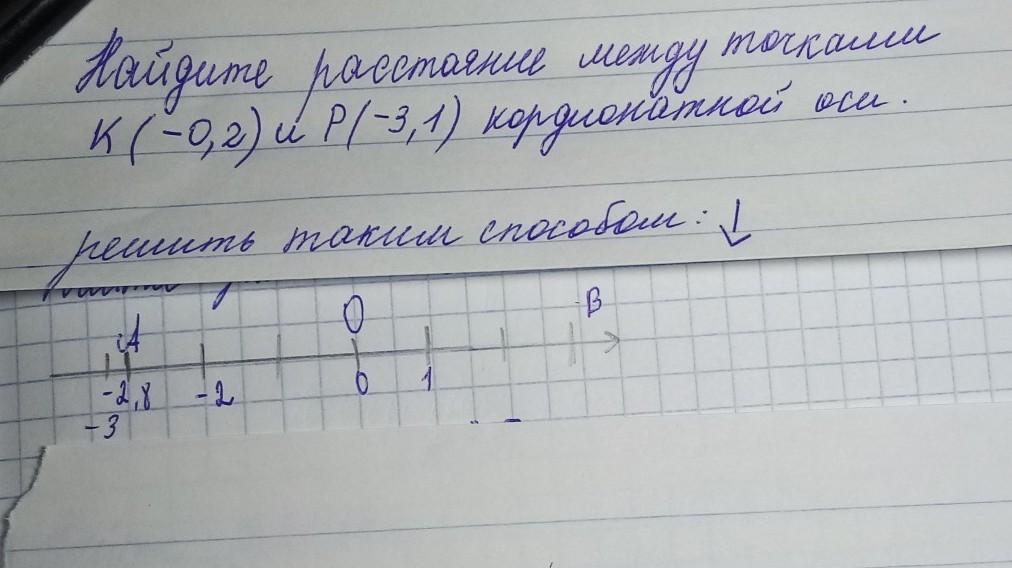 Найдите расстояние между точками
К (-0,2) и Р(-3,1) кордионатной оси.
решить таким способом: ↓
А О В
-2,8 -2 0 1
-3